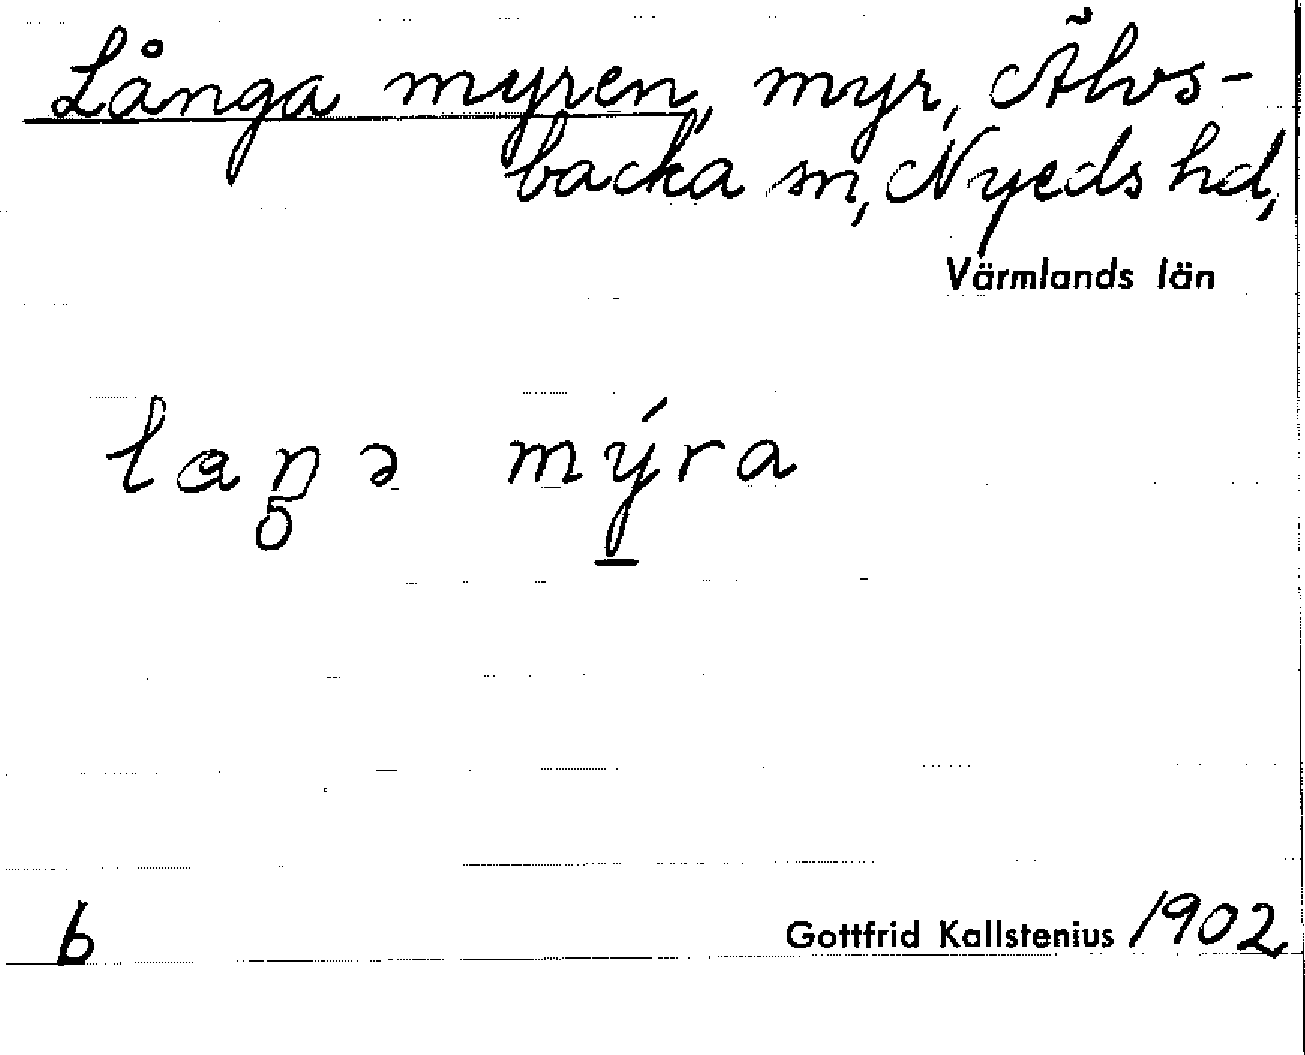 Långa myren, myr, Älvs-
backa sn, Nyeds hd,
Värmlands län
laŋə mýra
b
Gottfrid Kallstenius 1902